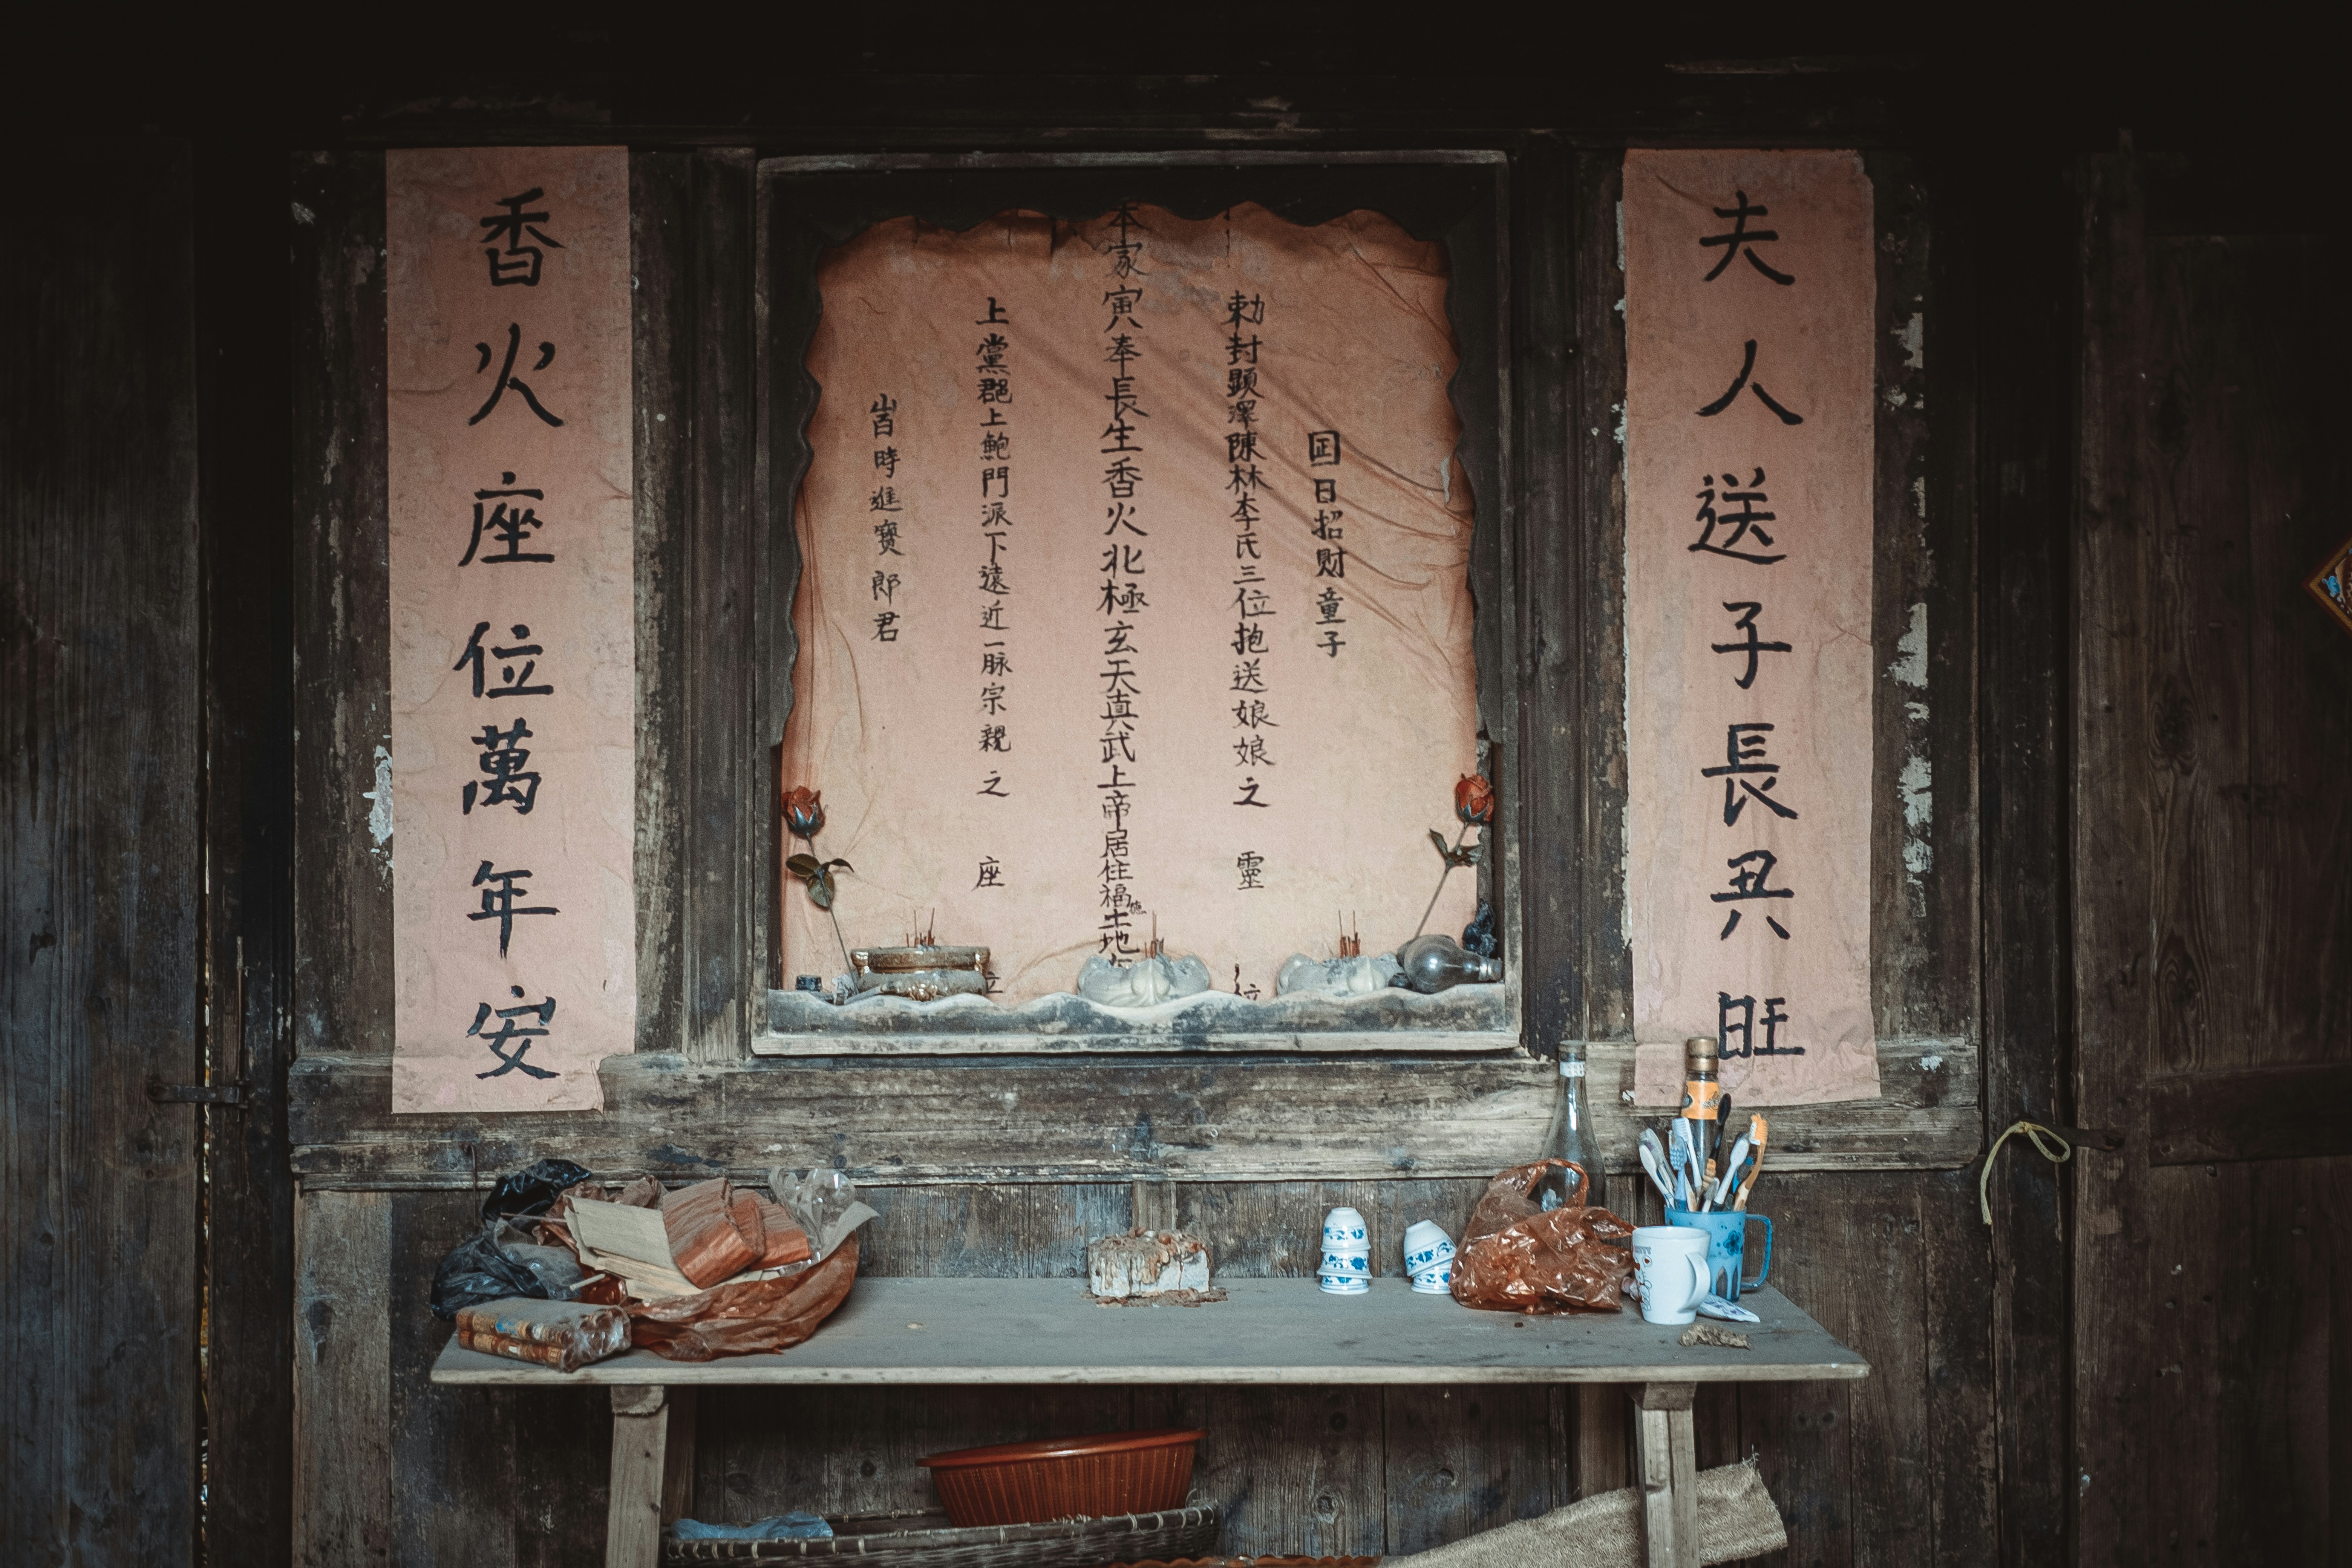 夫人送子長丑旺
日招財童子
勅封顕澤陳林李氏三位抱送娘娘之靈位
本家寅奉長生香火北極玄天真武上帝居住福土地
上黨郡上鮑門派下遠近一脉宗親之座位
時進寶郎君
香火座位萬年安